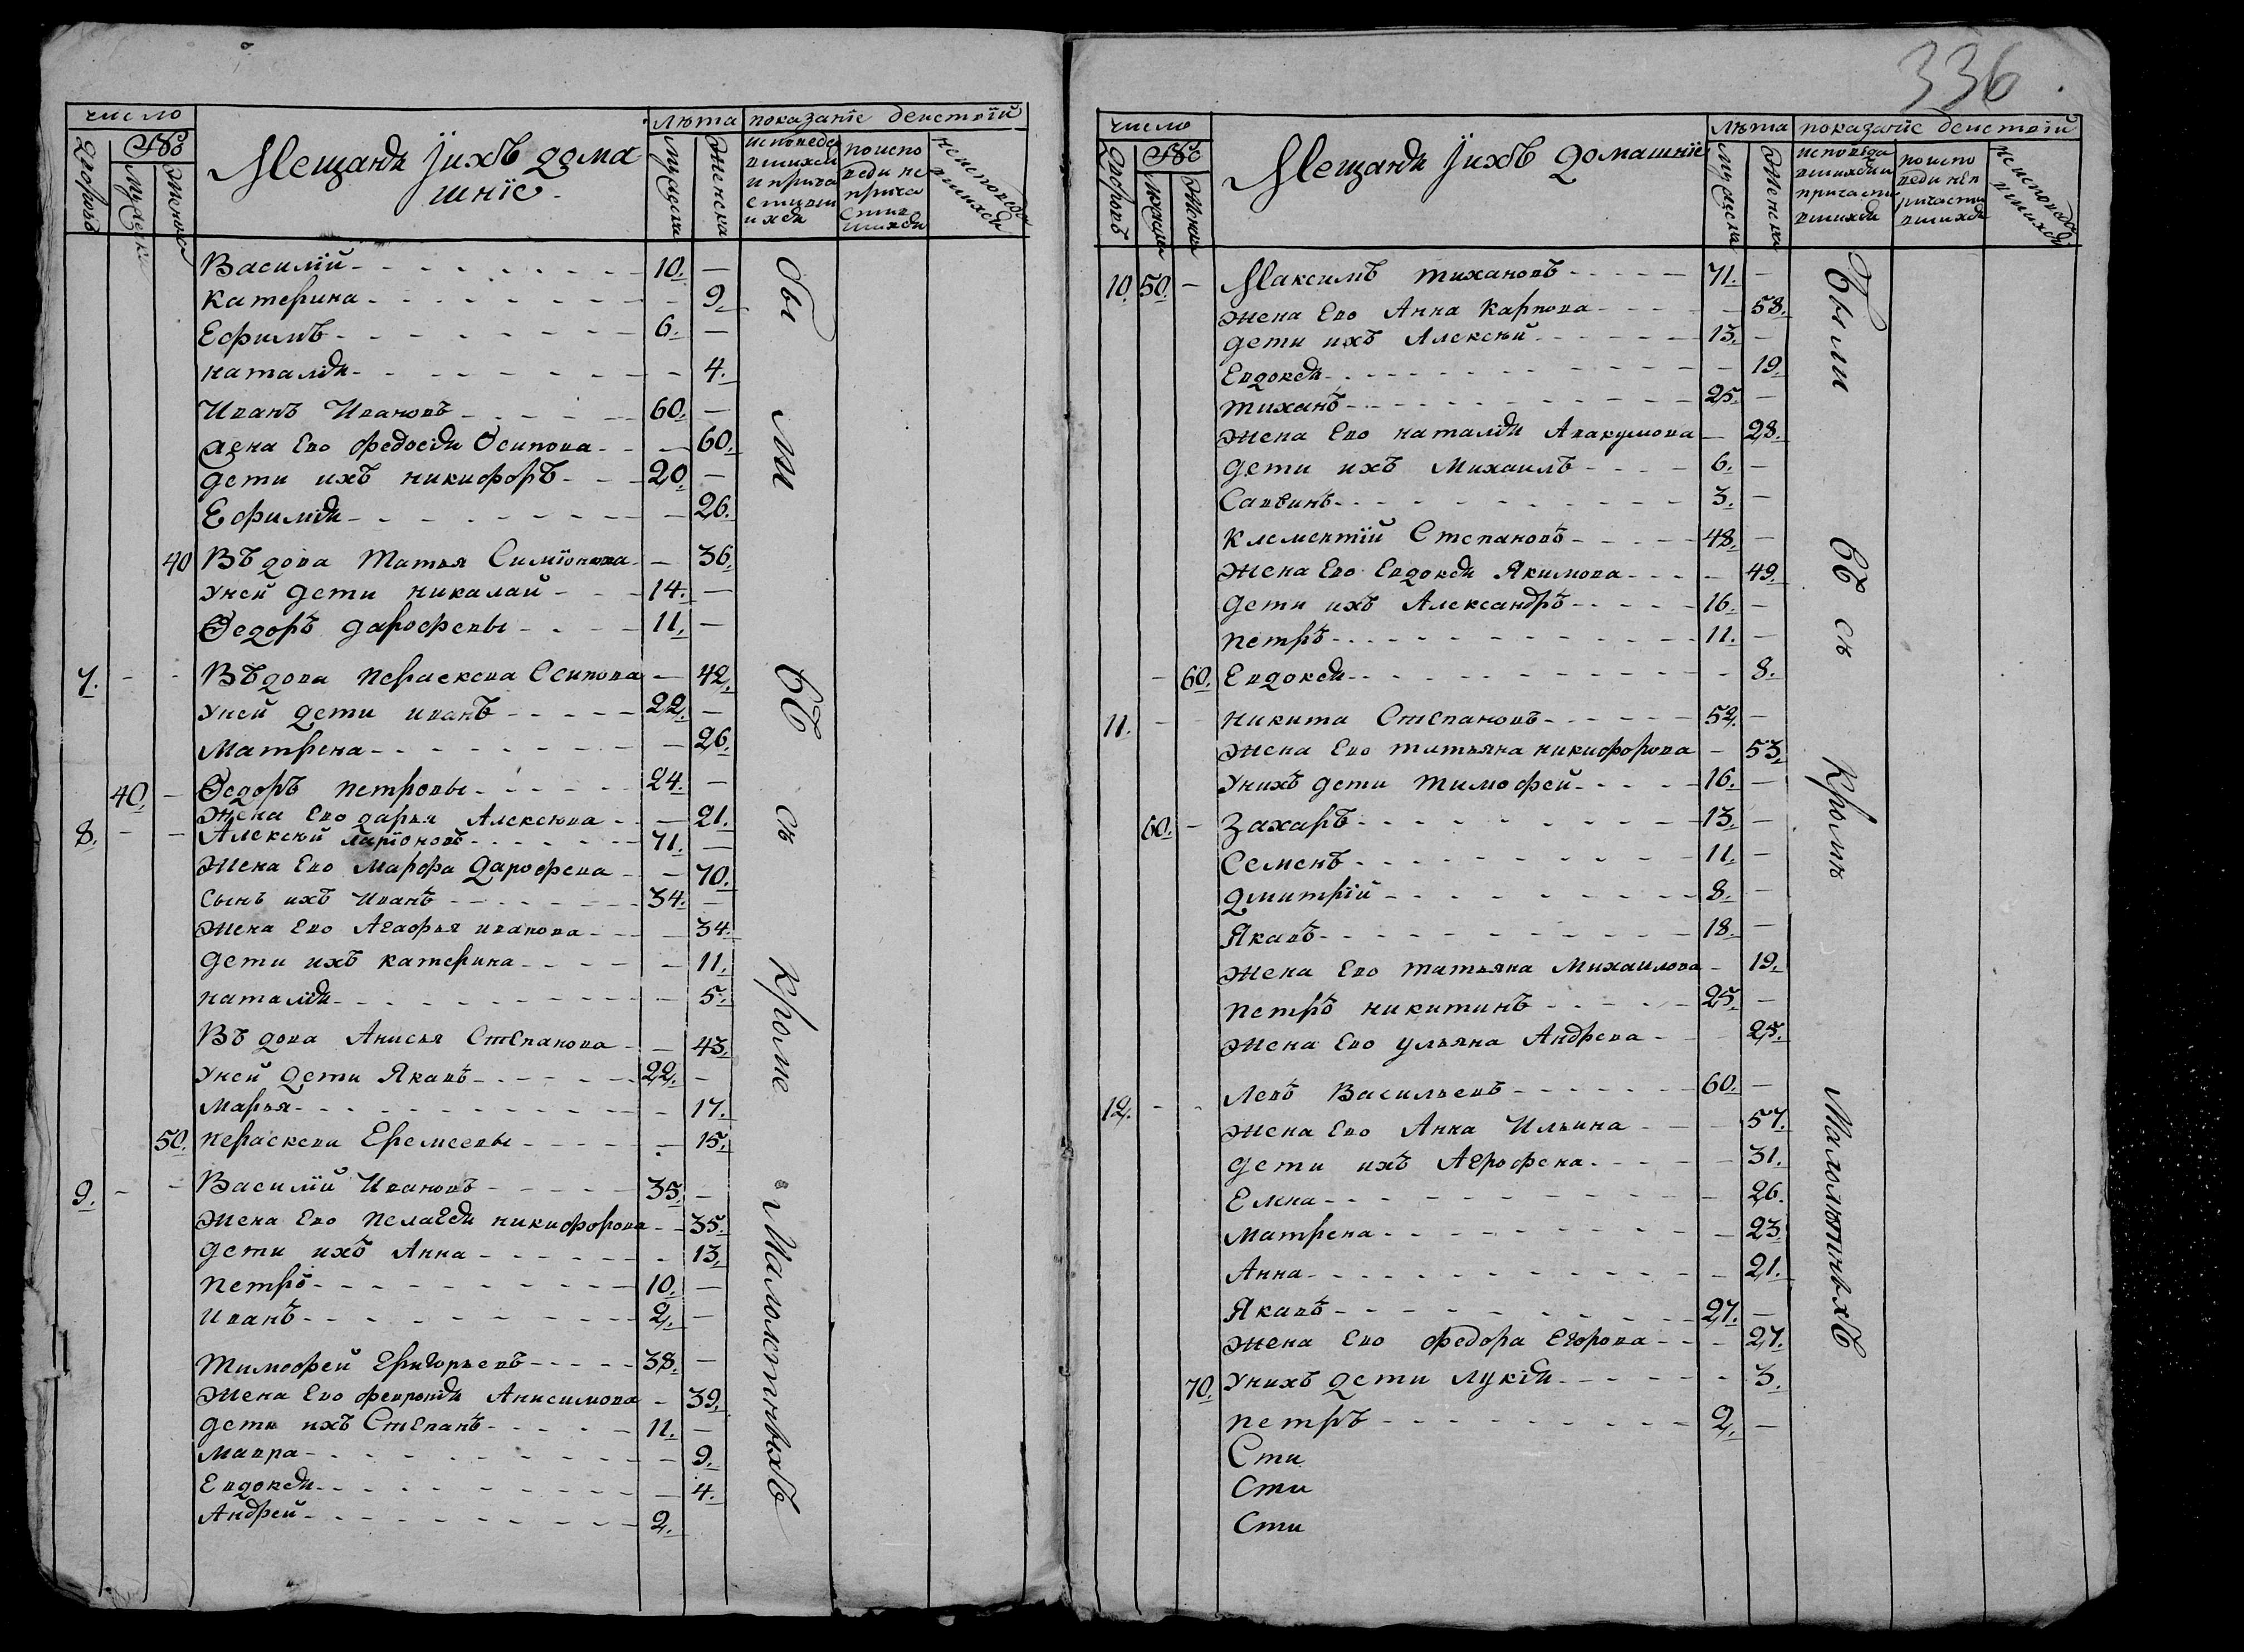 число
Дворовъ
Мужеска
Женска
Мещаня ихъ дома
шнїе
лѣта
Мужеска
Женска
показанїе деиствїй
исповеда
вшихся
и прича
стивш
ихся
по испо
веди не
прича
стив
шихся
не исповеда
вшихся
Василїй 10. —
катерина — 9.
Ефимъ 6. —
наталїя — 4.
Иванъ Ивановъ 60. —
жена Ево федосїя Осипова — 60.
дети ихъ никифоръ 20. —
Ефимїя — 26.
40 Въдова Татья Симїонова — 36.
уней дети николай 14. —
Федоръ дарофевы 11. —
7. - - Въдова пераскева Осипова — 42.
уней дети иванъ 22. —
Матрена — 26.
40. — Федоръ петровы 24. —
Жена Ево дарья Алексѣева — 21.
8. — — Алексѣй ларїоновъ 71. —
Жена Ево Марфа дарофева — 70.
сынъ ихъ Иванъ 34. —
жена Ево Агафья иванова — 34.
дети ихъ катерина — 11.
наталїя — 5.
Въдова Анисья Степанова — 43.
уней дети Якавъ 22. —
Марья — 17.
50. пераскева Еремеевы — 15.
9. - - Василїй Ивановъ 35. —
жена Ево пелагея никифорова — 35.
дети ихъ Анна — 13.
петръ 10. —
иванъ 2. —
Тимофей Григорьевъ 38. —
жена Ево февронїя Анисимова — 39.
дети ихъ Степанъ 11. —
мавра — 9.
Евдокея — 4.
Андрей 2.
Бы ли всѣ кроме Малолетнихъ
336
число
Дворовъ
Мужеска
Женска
Мещаня ихъ домашнїе
лѣта
Мужеска
Женска
показанїе деиствїй
исповѣда
вшихся и
причасти
вшихся
по испо
веди неп
ричасти
вшихся
не исповеда
вшихся
10. 50. — Максимъ тихановъ 71. —
жена Ево Анна карпова — 58.
дети ихъ Алексѣй 13. —
Евдокея — 19.
тиханъ 25. —
жена Ево наталїя Авакумова — 28.
дети ихъ Михаилъ 6. —
Саввинъ 3. —
клементїй Степановъ 48. —
жена Ево Евдокея Якимова — 49.
дети ихъ Александръ 16. —
петръ 11. —
— 60. Евдокея — 8.
11. — никита Степановъ 52. —
жена Ево татьяна никифорова — 53.
унихъ дети тимофей 16. —
60. — Захаръ 13. —
Семенъ 11. —
дмитрїй 8. —
Якавъ 18. —
жена Ево татьяна Михаилова — 19.
петръ никитинъ 25. —
жена Ево ульяна Андрева — 25.
12. - - Левъ Васильевъ 60. —
жена Ево Анна Ильина — 57.
дети ихъ Агрофена — 31.
Елена — 26.
матрена — 23.
Анна — 21.
Якавъ 27. —
жена Ево федора Егорова — 27.
70. унихъ дети лукїя — 3.
петръ 2. —
Сти
Сти
Сти
Были всѣ кромѣ Малолѣтныхъ